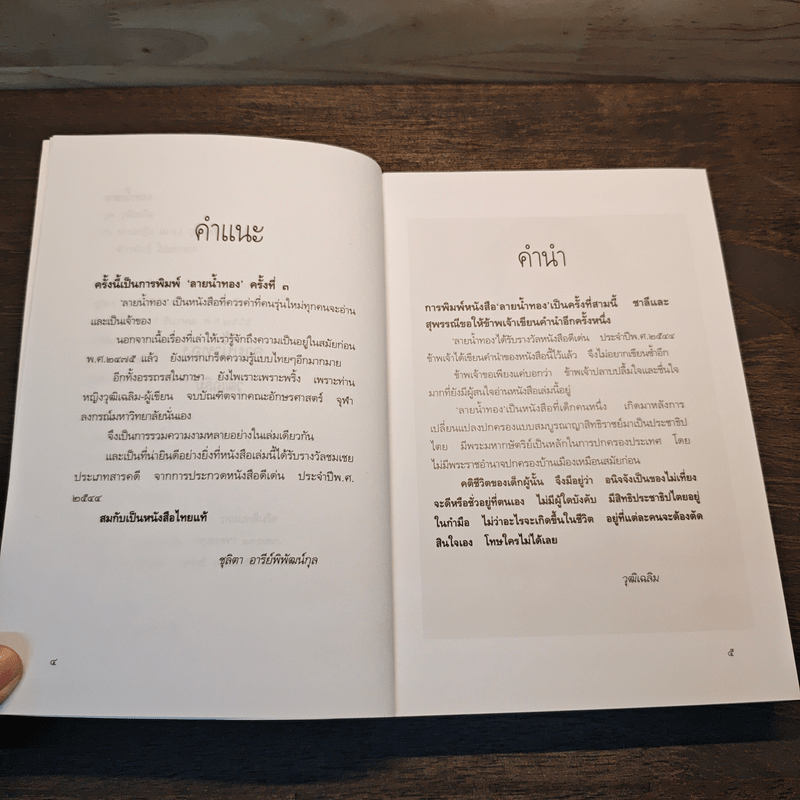 คำแนะ
ครั้งนี้เป็นการพิมพ์ 'ลายน้ำทอง' ครั้งที่ ๓
'ลายน้ำทอง' เป็นหนังสือที่ควรค่าที่คนรุ่นใหม่ทุกคนจะอ่าน
และเป็นเจ้าของ
นอกจากเนื้อเรื่องที่เล่าให้เรารู้จักถึงความเป็นอยู่ในสมัยก่อน
พ.ศ.๒๔๗๕ แล้ว ยังแทรกเกร็ดความรู้แบบไทยๆอีกมากมาย
อีกทั้งอรรถรสในภาษา ยังไพเราะเพราะพริ้ง เพราะท่าน
หญิงวุฒิเฉลิม-ผู้เขียน จบบัณฑิตจากคณะอักษรศาสตร์ จุฬา
ลงกรณ์มหาวิทยาลัยนั่นเอง
จึงเป็นการรวมความงามหลายอย่างในเล่มเดียวกัน
และเป็นที่น่ายินดีอย่างยิ่งที่หนังสือเล่มนี้ได้รับรางวัลชมเชย
ประเภทสารคดี จากการประกวดหนังสือดีเด่น ประจำปีพ.ศ.
๒๕๔๔
สมกับเป็นหนังสือไทยแท้
ชุลิตา อารีย์พิพัฒน์กุล
๔
คำนำ
การพิมพ์หนังสือ'ลายน้ำทอง'เป็นครั้งที่สามนี้ ชาลีและ
สุพรรณีขอให้ข้าพเจ้าเขียนคำนำอีกครั้งหนึ่ง
'ลายน้ำทอง'ได้รับรางวัลหนังสือดีเด่น ประจำปีพ.ศ.๒๕๔๔
ข้าพเจ้าได้เขียนคำนำของหนังสือนี้ไว้แล้ว จึงไม่อยากเขียนซ้ำอีก
ข้าพเจ้าขอเพียงแค่บอกว่า ข้าพเจ้าปลาบปลื้มใจและชื่นใจ
มากที่ยังมีผู้สนใจอ่านหนังสือเล่มนี้อยู่
'ลายน้ำทอง'เป็นหนังสือที่เด็กคนหนึ่ง เกิดมาหลังการ
เปลี่ยนแปลงปกครองแบบสมบูรณาญาสิทธิราชย์มาเป็นประชาธิป
ไตย มีพระมหากษัตริย์เป็นหลักในการปกครองประเทศ โดย
ไม่มีพระราชอำนาจปกครองบ้านเมืองเหมือนสมัยก่อน
คติชีวิตของเด็กผู้นั้น จึงมีอยู่ว่า อนิจจังเป็นของไม่เที่ยง
จะดีหรือชั่วอยู่ที่ตนเอง ไม่มีผู้ใดบังคับ มีสิทธิประชาธิปไตยอยู่
ในกำมือ ไม่ว่าอะไรจะเกิดขึ้นในชีวิต อยู่ที่แต่ละคนจะต้องตัด
สินใจเอง โทษใครไม่ได้เลย
วุฒิเฉลิม
๕